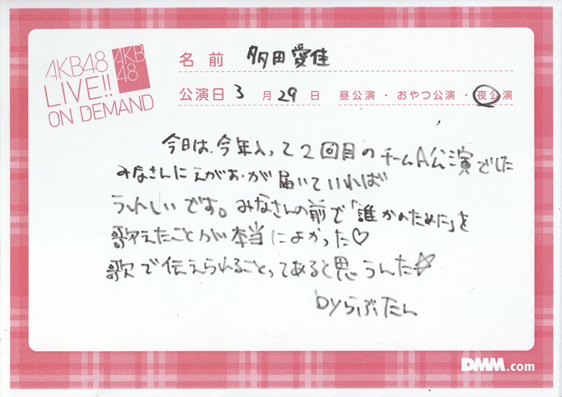 AKB48
LIVE!!
ON DEMAND
AKB
48
名前 多田愛佳
公演日 3月29日 昼公演・おやつ公演・夜公演
今日は、今年入って2回目のチームA公演でした
みなさんにえがおが届いていれば
うれしいです。みなさんの前で「誰かのために」を
歌えたことが本当によかった♡
歌で伝えられることってあると思うんだ☆
byらぶたん
DMM.com